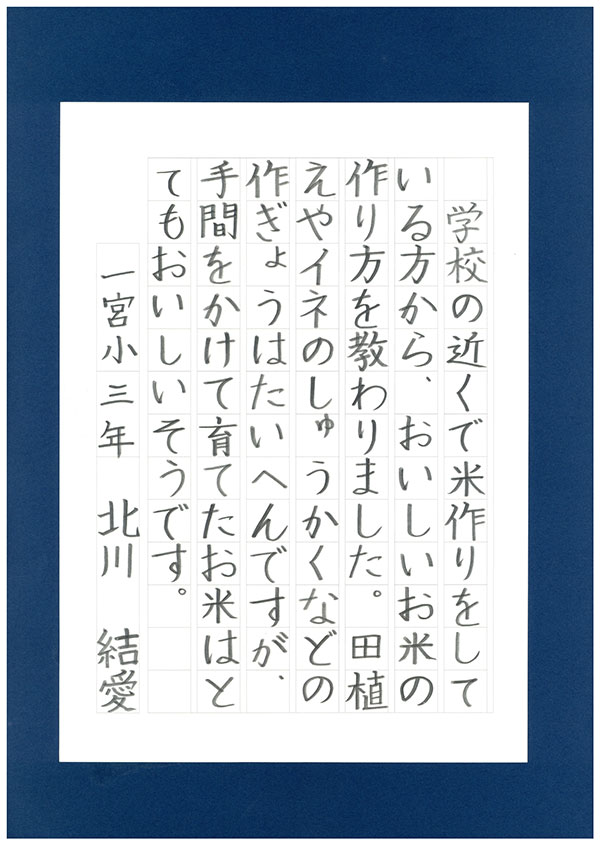 学校の近くで米作りをして
いる方から、おいしいお米の
作り方を教わりました。田植
えやイネのしゅうかくなどの
作ぎょうはたいへんですが、
手間をかけて育てたお米はと
てもおいしいそうです。
一宮小三年 北川 結愛